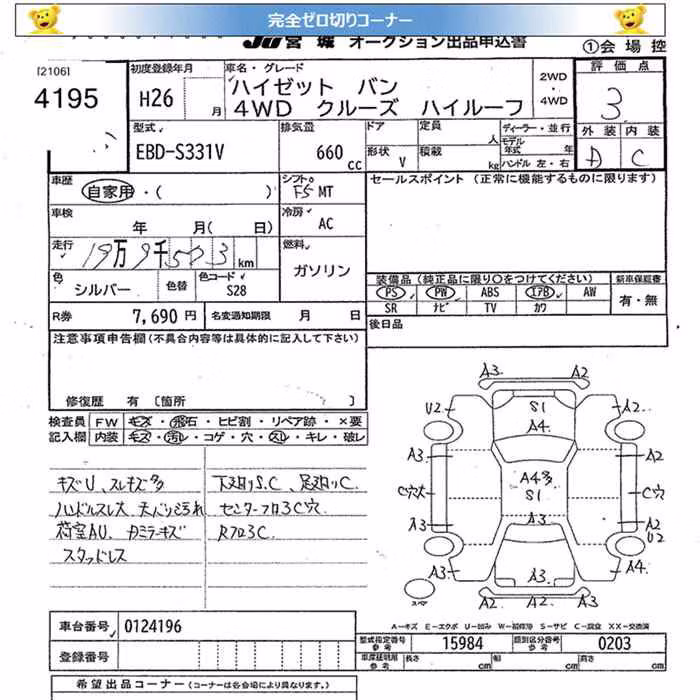 完全ゼロ切りコーナー
JU宮城 オークション出品申込書
①会場控
[2106]
4195
初度登録年月
H26 月
車名・グレード
ハイゼット バン
4WD クルーズ ハイルーフ
2WD
・
4WD
評価点
3
外装 内装
D C
型式
EBD-S331V
排気量
660 cc
ドア
形状 V
定員 人
積載 kg
ディーラー・並行
モデル年式 年
ハンドル 左・右
車歴
自家用・( )
シフト
F5 MT
セールスポイント (正常に機能するものに限ります)
車検
年 月( 日)
冷房
AC
走行
19万9千503 km
燃料
ガソリン
色
シルバー
色替
色コード
S28
装備品(純正品に限り○をつけてください)
新車保証書
PS PW ABS エアB AW
SR ナビ TV カワ
有・無
R券 7,690円
名変通知期限 月 日
後日品
注意事項申告欄(不具合内容等は具体的に記入して下さい)
修復歴 有 [箇所 ]
検査員 FW キズ・飛石・ヒビ割・リペア跡・×要
記入欄 内装 キズ・汚レ・コゲ・穴・スレ・キレ・破レ
キズU、スレキズ多
ハンドルスレ大 天バリ汚れ
荷室AU、カミラーキズ
スタッドレス
下廻りS.C、足廻りC
センターフロアC穴
RフロアC
A3 A2
U2 S1 A2
A4
A3 A2
A4多
S1
C穴大 C穴
A3 A3 A2
U2
A3 A3 A4
A2 A2 A3
スペア
A-キズ E-エクボ U-凹み W-補修跡 S-サビ C-腐食 XX-交換済
車台番号 0124196
登録番号
型式指定番号 参考 15984
類別区分番号 参考 0203
車庫証明用 参考 長さ cm 幅 cm 高さ cm
希望出品コーナー (コーナーは各会場により異なります。)